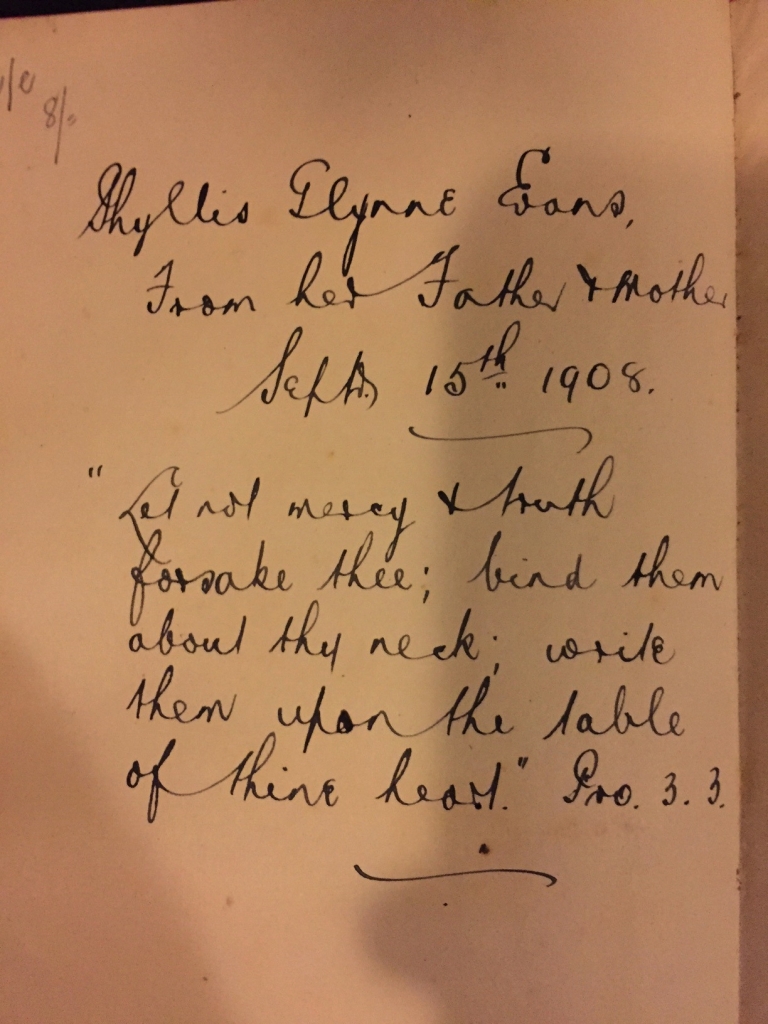 8/-
Phyllis Glynne Evans,
From her Father & Mother
Septr. 15th 1908.
"Let not mercy & truth
forsake thee; bind them
about thy neck; write
them upon the table
of thine heart." Pro. 3. 3.